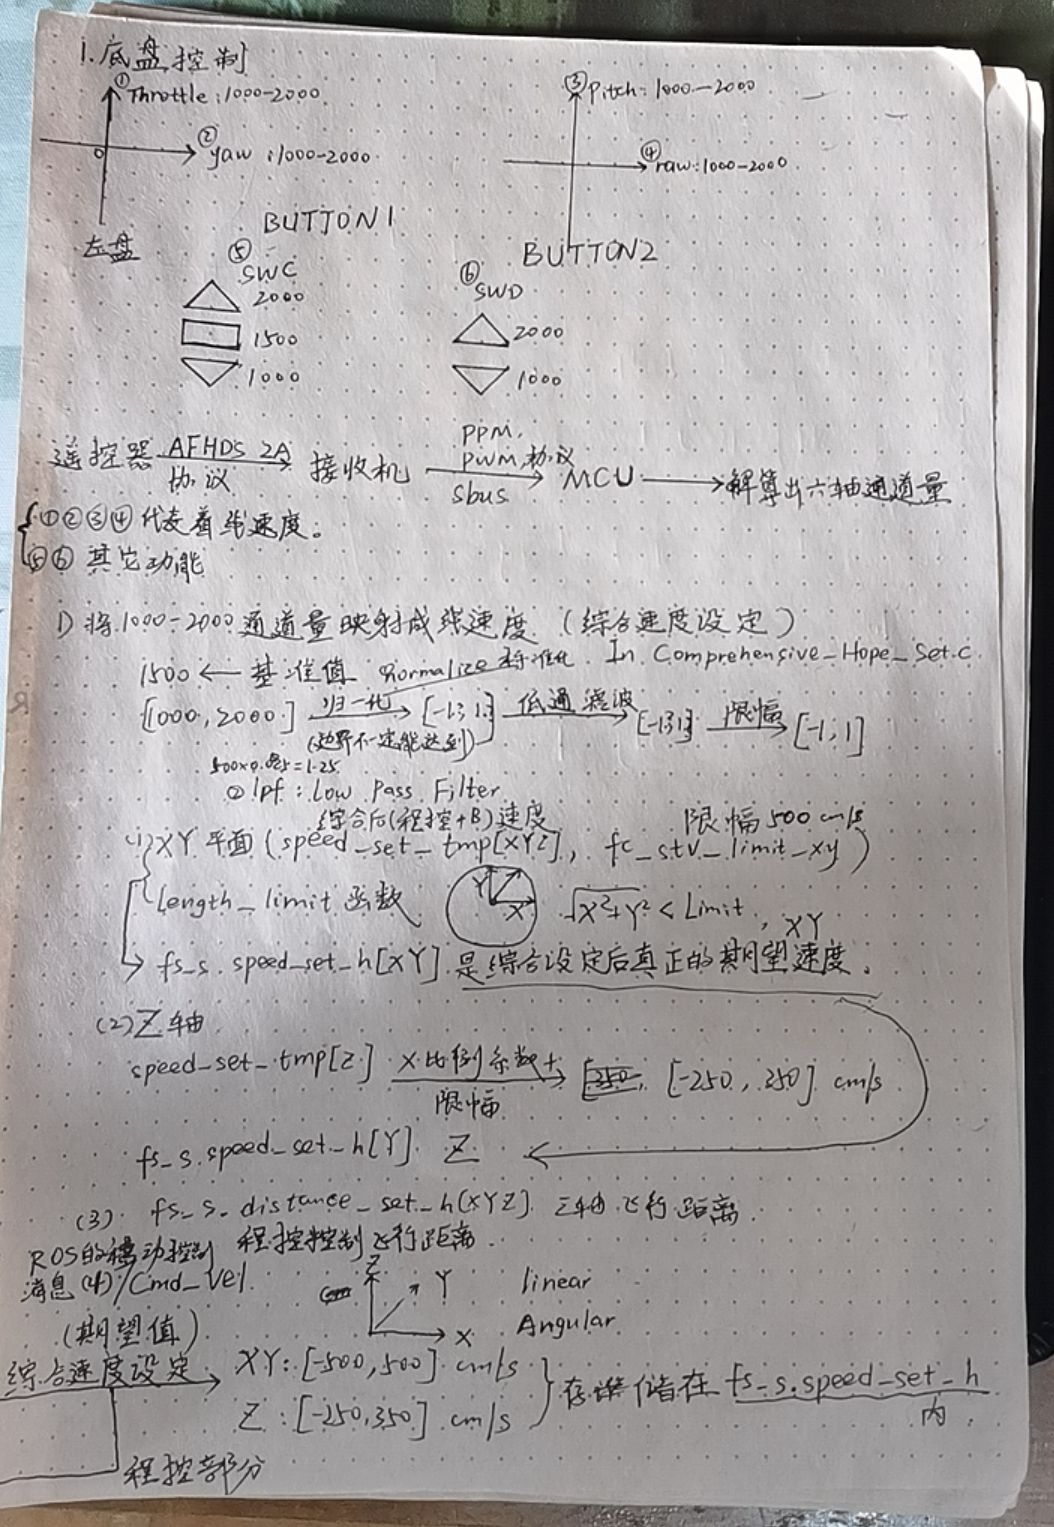 1.底盘控制
① Throttle:1000-2000
③ Pitch:1000-2000
② yaw:1000-2000
④ raw:1000-2000
0
左盘
BUTTON1
BUTTON2
⑤
SWC
2000
1500
1000
⑥
SWD
2000
1000
遥控器 AFHDS 2A 协议 接收机 PPM, PWM,协议 sbus MCU 解算出六轴通道量
①②③④代表着线速度。
⑤⑥ 其它功能
1) 将1000-2000通道量映射成线速度 (综合速度设定)
1500 ← 基准值 normalize 标准化 In Comprehensive_Hope_Set.c
[1000,2000] 归一化 → [-1,1] 低通滤波 → [-1,1] 限幅 → [-1,1]
(边界不一定能达到)
② lpf : Low Pass Filter
综合后(程控+B)速度
限幅 500 cm/s
(1) XY 平面 (speed_set_tmp[XYZ], fc_stv_limit_xy)
length_limit 函数 Y X √X²+Y² < Limit, XY
→ fs_s.speed_set_h[XY] 是综合设定后真正的期望速度。
(2) Z 轴
speed_set_tmp[Z] X 比例系数+ 限幅 → [-250,350] cm/s
fs_s.speed_set_h[Y] Z ←
(3). fs_s_distance_set_h[XYZ] 三轴飞行距离
程控控制飞行距离
ROS的移动控制
消息(4) /Cmd_Vel
(期望值)
Z Y X
linear
Angular
综合速度设定 → XY:[-500,500] cm/s
Z:[-250,350] cm/s
} 存储在 fs_s.speed_set_h 内
程控部分